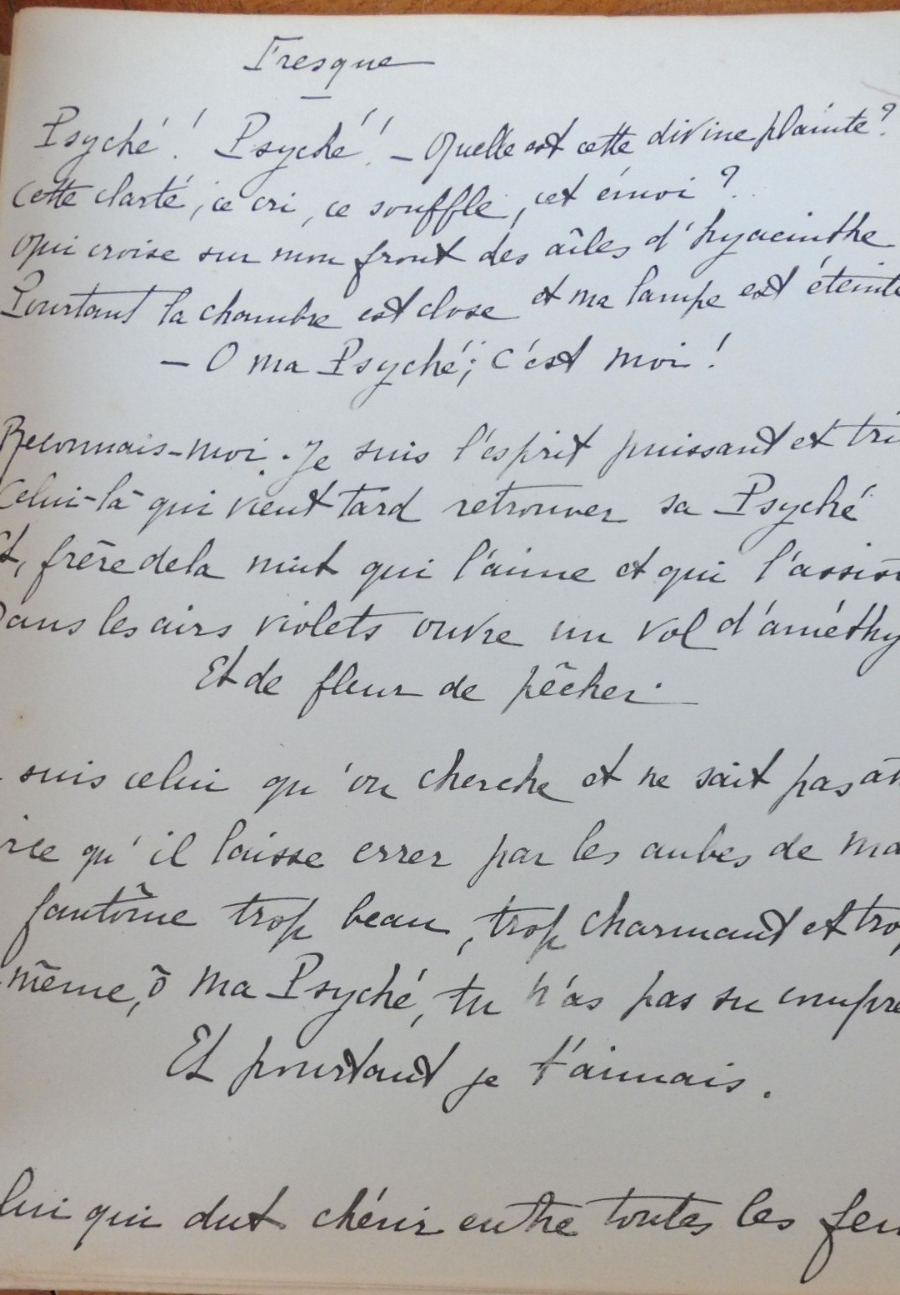 Fresque
Psyché! Psyché! — Quelle est cette divine plainte?
Cette clarté, ce cri, ce souffle, cet émoi?
Qui croise sur mon front des aîles d'hyacinthe
Pourtant la chambre est close et ma lampe est éteinte
— O ma Psyché, c'est moi!
Reconnais-moi. Je suis l'esprit puissant et tri
Celui-là qui vient tard retrouver sa Psyché
Et, frère de la nuit qui l'aime et qui l'assis
Dans les airs violets ouvre un vol d'améthy
Et de fleur de pêcher.
suis celui qu'on cherche et ne sait pas at
rce qu'il laisse errer par les aubes de ma
fantôme trop beau, trop charmant et trop
-même, ô ma Psyché, tu n'as pas su compre
Et pourtant je t'aimais.
lui qui dut chérir entre toutes les fem